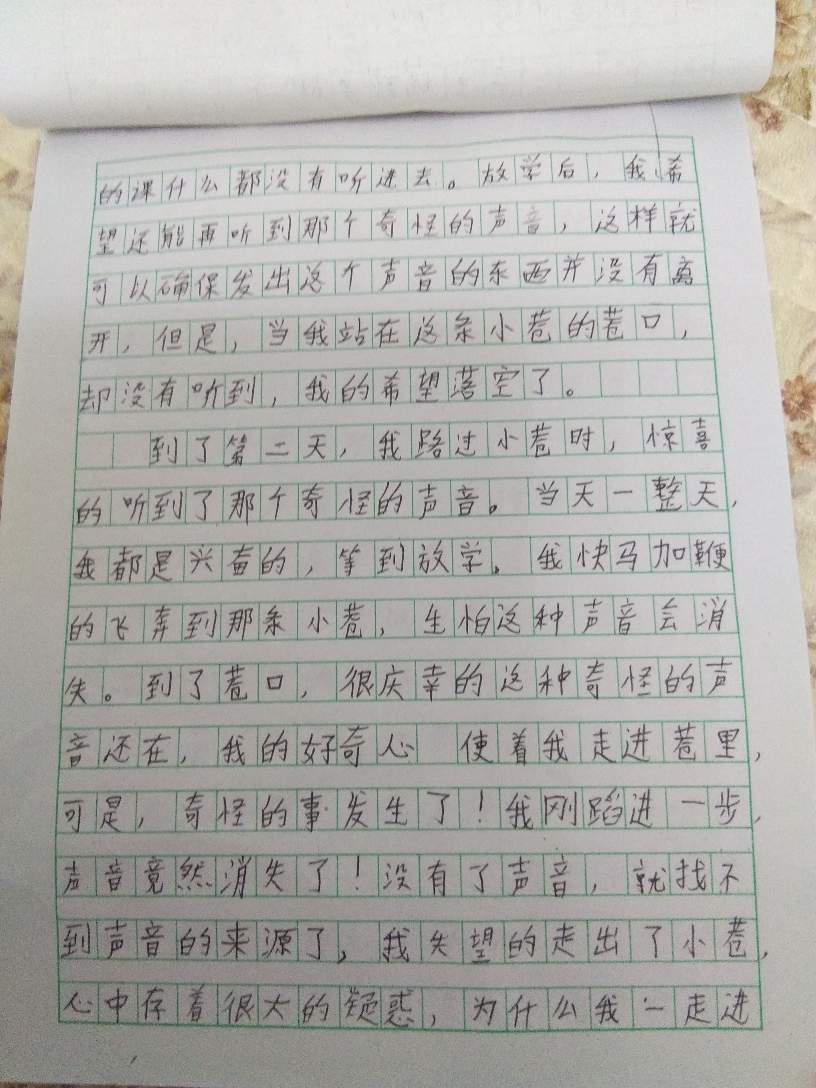 的课什么都没有听进去。放学后，我希
望还能再听到那个奇怪的声音，这样就
可以确保发出这个声音的东西并没有离
开，但是，当我站在这条小巷的巷口，
却没有听到，我的希望落空了。
到了第二天，我路过小巷时，惊喜
的听到了那个奇怪的声音。当天一整天，
我都是兴奋的，等到放学。我快马加鞭
的飞奔到那条小巷，生怕这种声音会消
失。到了巷口，很庆幸的这种奇怪的声
音还在，我的好奇心 使着我走进巷里，
可是，奇怪的事发生了！我刚蹈进一步，
声音竟然消失了！没有了声音，就找不
到声音的来源了，我失望的走出了小巷，
心中存着很大的疑惑，为什么我一走进